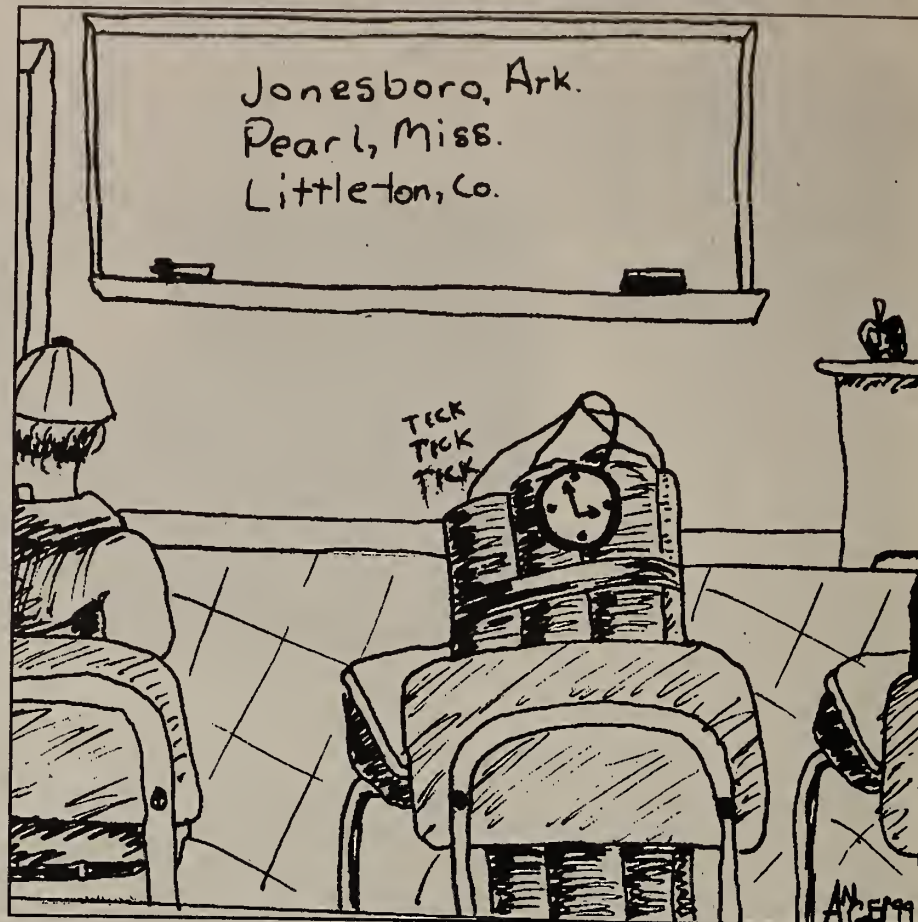 Jonesboro, Ark.
Pearl, Miss.
Littleton, Co.
TICK
TICK
TICK